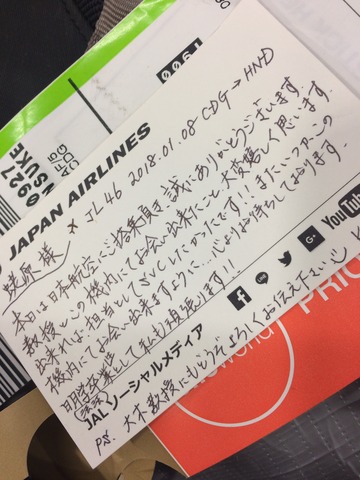 JAPAN AIRLINES
JL46 2018.01.08 CDG → HND
様
本日は日本航空にご搭乗頂き誠にありがとうございます。
教授とこの機内にてお会い出来たこと、大変嬉しく思います。
出来れば担当としてさせていたかったです!!またいつかこの
機内にてお会い出来ますように…心よりお待ちしております。
明学卒業として私も頑張ります!!
JALソーシャルメディア
YouTube
G+
P.S. 大木教授にもどうぞよろしくお伝え下さい
0927
AF5
CDG
NSUKE
PRIO
world